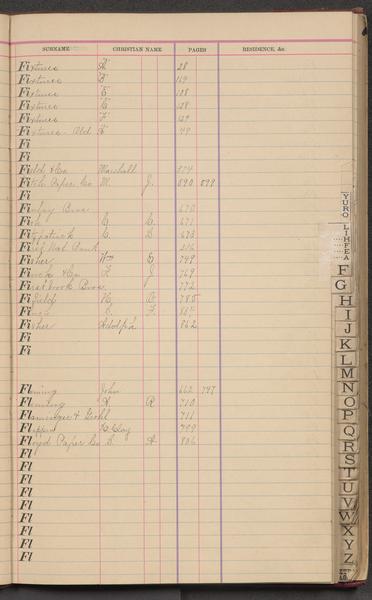 SURNAME CHRISTIAN NAME PAGES RESIDENCE, &c.
Fixtures "A" 28
Fixtures "B" 119
Fixtures 108
Fixtures 128
Fixtures "F" 129
Fixtures - Old 49
Fi
Fi
Field & Co Marshall 874
Fitch Paper Co M. J. 890 899
Fi
Finlay Bros 670
Fi C. C. 671
Fitzpatrick C. D. 673
First Nat Bank 216
Fisher Wm C. 749
Finch & Co F. J. 769
Firstbrook Bros. 772
Fifield O. 785
Fi F.
Fisher Adolph 862
Fi
Fi
Fleming John 662 747
Fleming A R 710
Fl & 711
Fl Clay 799
Floyd Paper Co S. A. 806
Fl
Fl
Fl
Fl
Fl
Fl
Fl
Fl
Fl
F
G
H
I
J
K
L
M
N
O
P
Q
R
S
T
U
V
W
X
Y
Z